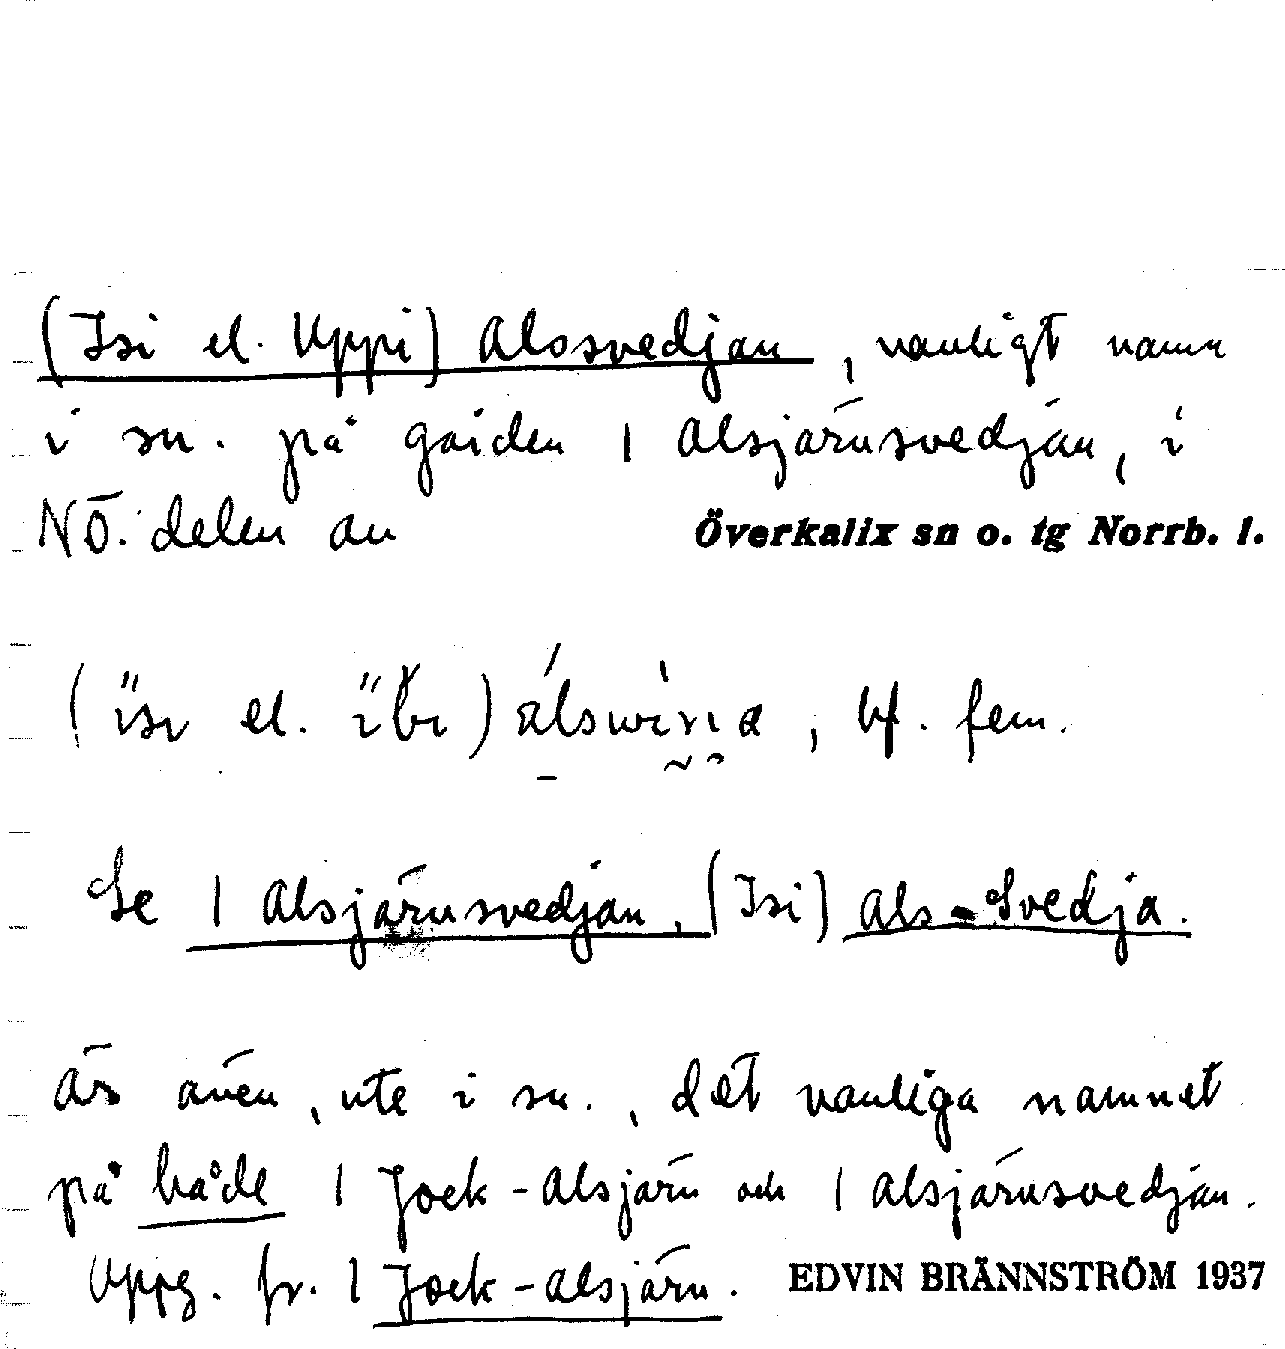 (Isi el. Uppi) Alosvedjan, vanligt namn
i sn. på gården 1 Alsjärnsvedjan, i
NÖ. delen av Överkalix sn o. tg Norrb. l.
el. , bf. fem.
Se 1 Alsjärnsvedjan, (Isi) Als-Svedja.
Är även, ute i sn., det vanliga namnet
på både 1 Jock-Alsjärn och 1 Alsjärnsvedjan.
Uppg. fr. 1 Jock-Alsjärn. EDVIN BRÄNNSTRÖM 1937